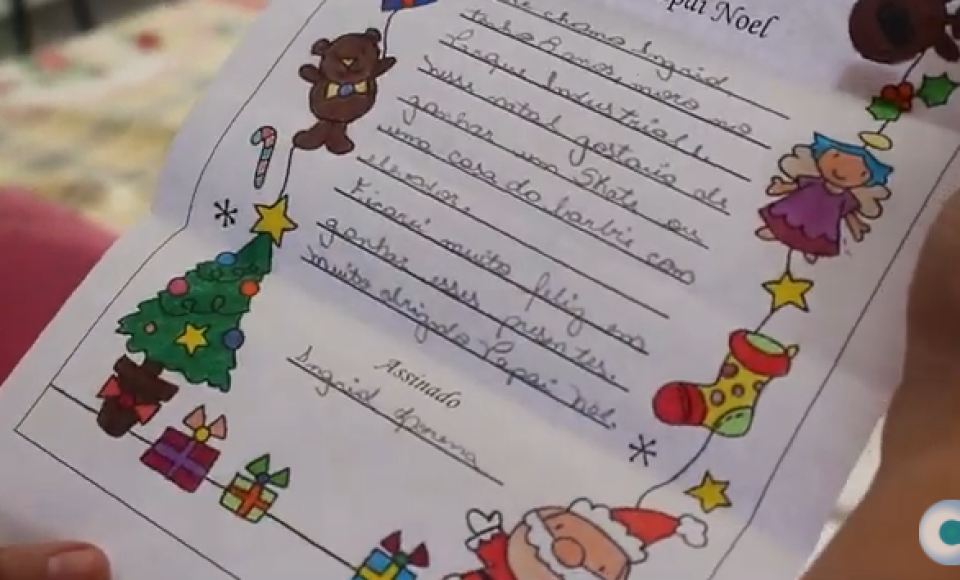 Papai Noel
me chamo Ingrid
tenho 8 anos, moro no
Parque Industrial.
gostaria de
ganhar um Skate ou
uma casa da barbie com
elevador.
Ficarei muito feliz em
ganhar esses presentes.
Muito obrigada Papai Noel.
Assinado
Ingrid